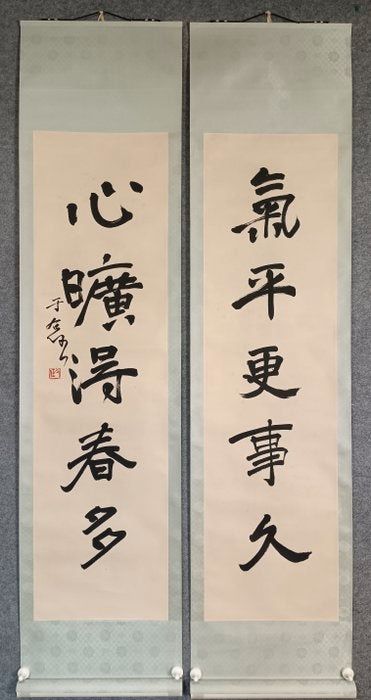 氣平更事久
心曠得春多
于右任